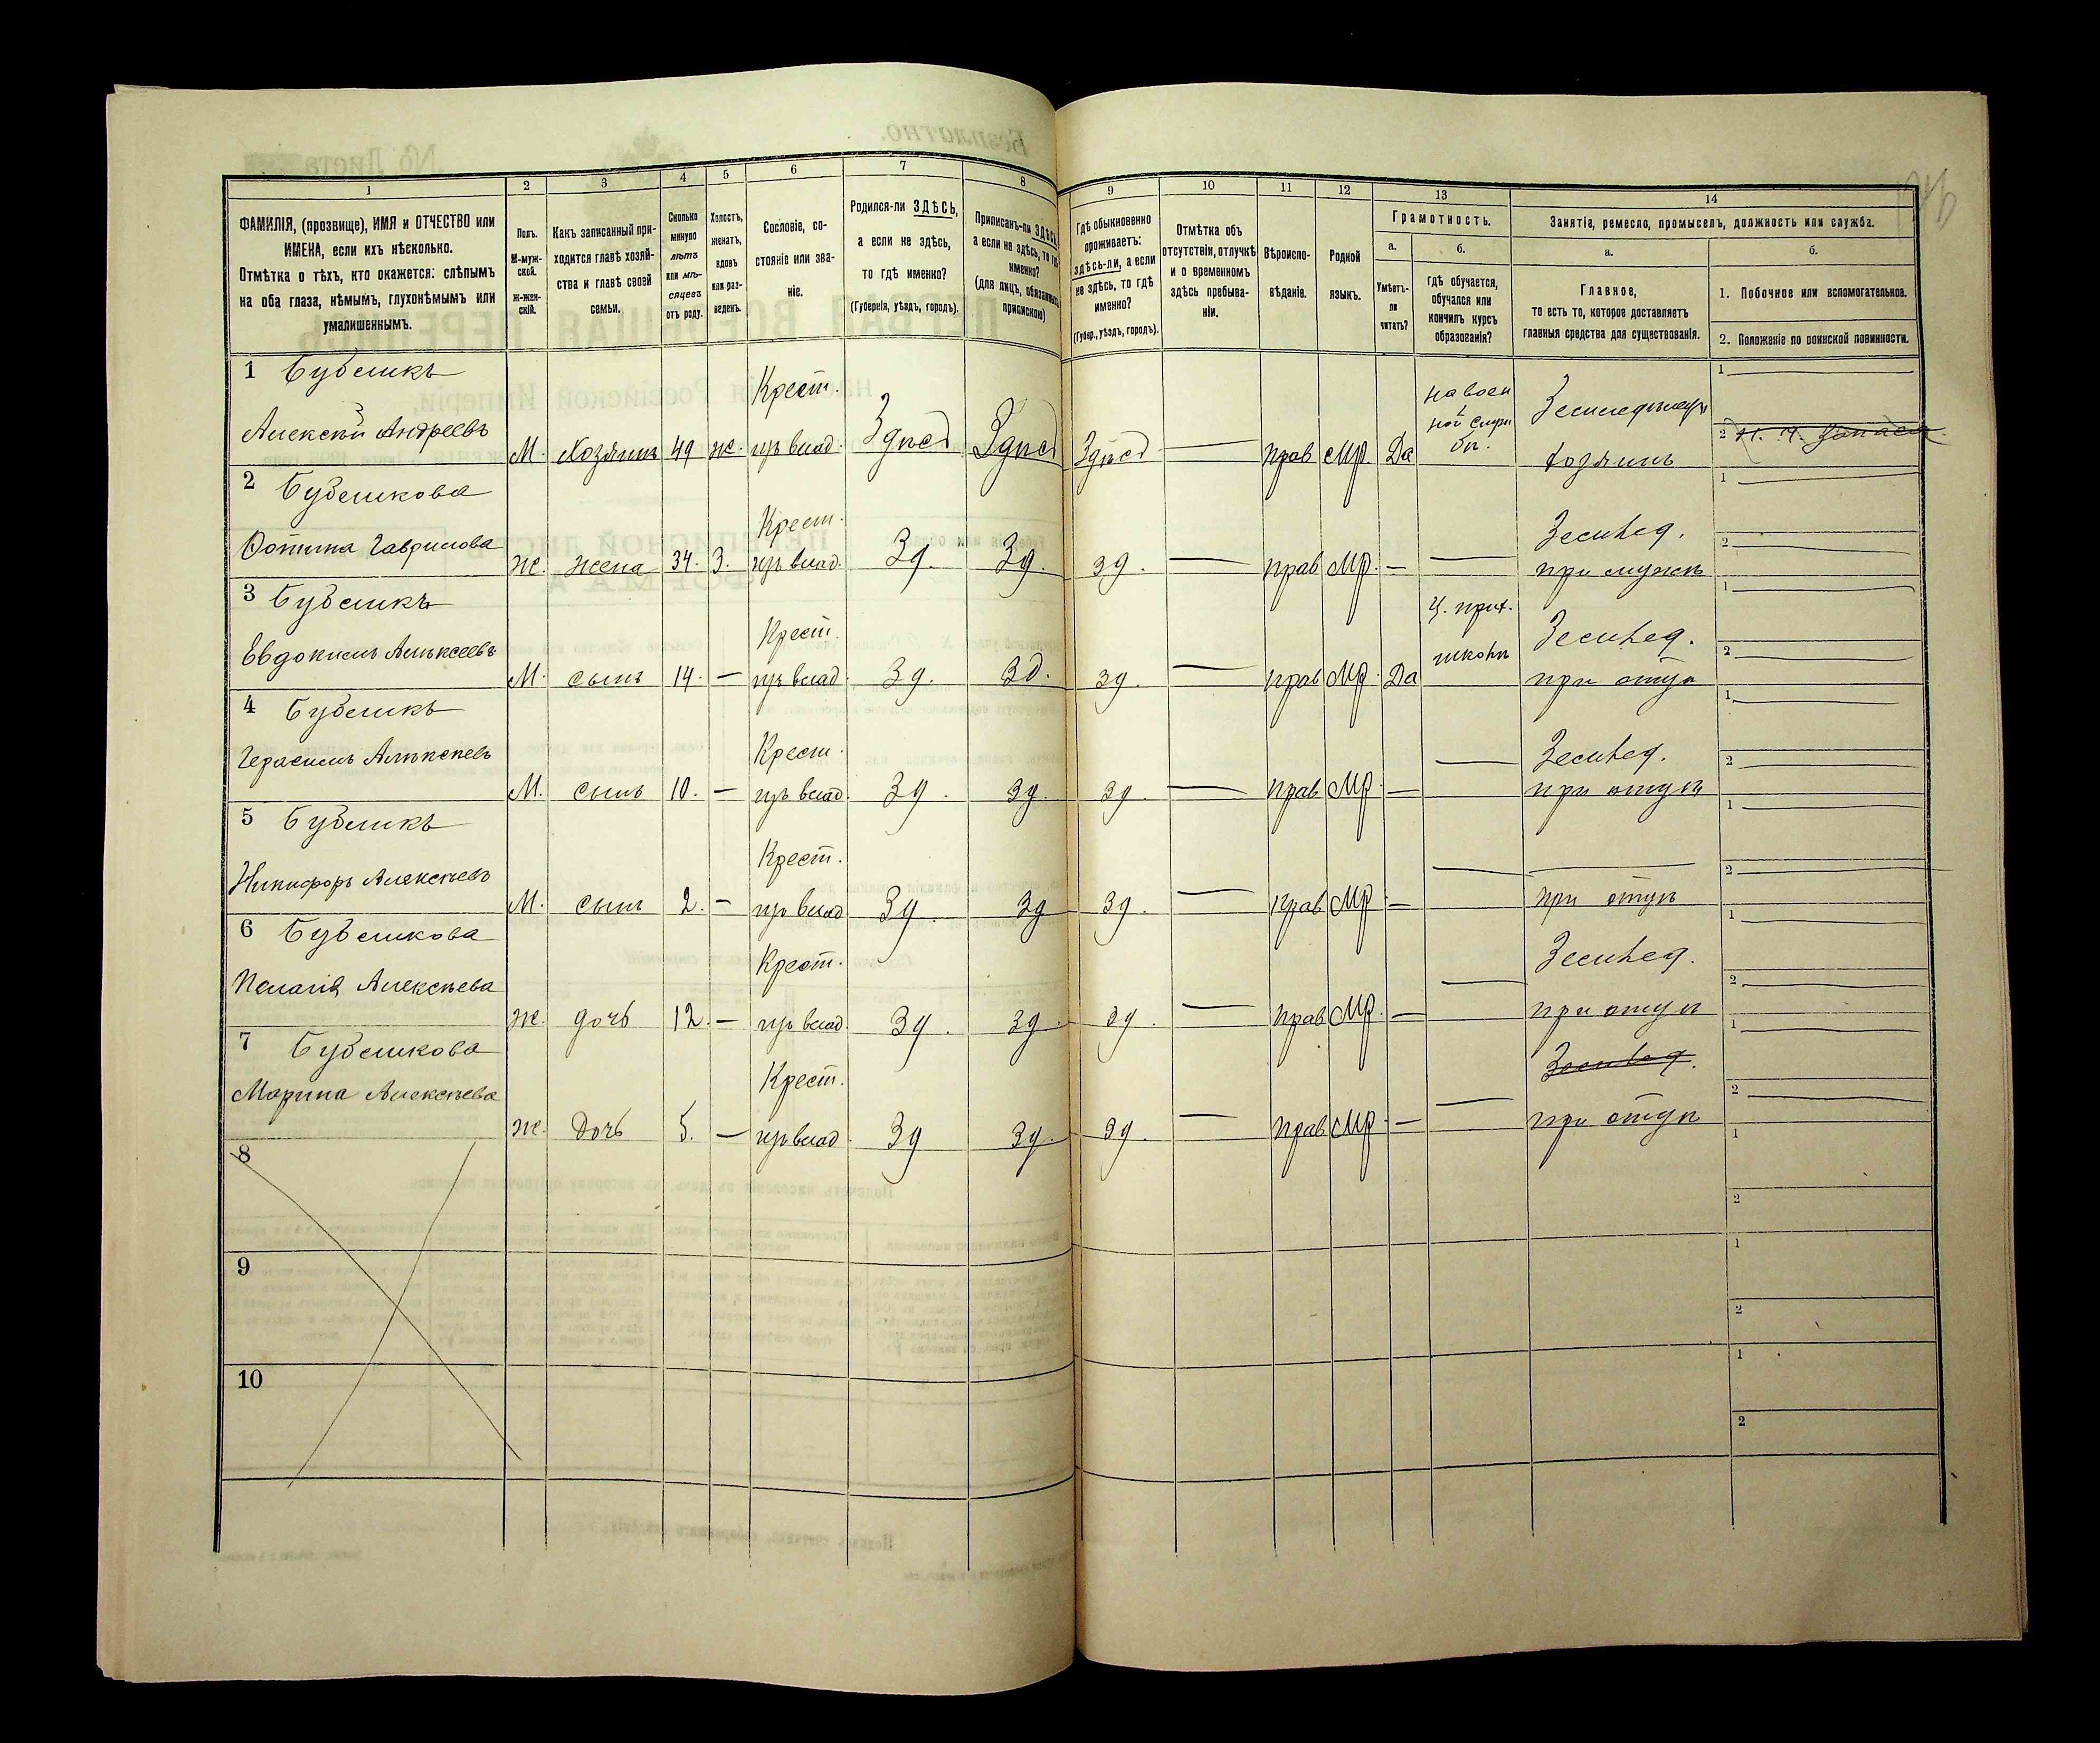 1 2 3 4 5 6 7 8 9 10 11 12 13 14
ФАМИЛІЯ, (прозвище), ИМЯ и ОТЧЕСТВО или
ИМЕНА, если ихъ нѣсколько.
Отмѣтка о тѣхъ, кто окажется: слѣпымъ
на оба глаза, нѣмымъ, глухонѣмымъ или
умалишеннымъ.
Полъ.
М-муж-
ской.
Ж-жен-
скій.
Какъ записанный при-
ходится главѣ хозяй-
ства и главѣ своей
семьи.
Сколько
минуло
лѣтъ
или мѣ-
сяцевъ
отъ роду.
Холостъ,
женатъ,
вдовъ
или раз-
веденъ.
Сословіе, со-
стояніе или зва-
ніе.
Родился-ли ЗДѢСЬ,
а если не здѣсь,
то гдѣ именно?
(Губернія, уѣздъ, городъ).
Приписанъ-ли ЗДѢСЬ,
а если не здѣсь, то гдѣ
именно?
(для лицъ, обязанныхъ
припискою)
Гдѣ обыкновенно
проживаетъ:
здѣсь-ли, а если
не здѣсь, то гдѣ
именно?
(Губер., уѣздъ, городъ).
Отмѣтка объ
отсутствіи, отлучкѣ
и о временномъ
здѣсь пребыва-
ніи.
Вѣроиспо-
вѣданіе.
Родной
языкъ.
Грамотность.
а.
Умѣетъ-
ли
читать?
б.
Гдѣ обучается,
обучался или
кончилъ курсъ
образованія?
Занятія, ремесло, промыселъ, должность или служба.
а.
Главное,
то есть то, которое доставляетъ
главныя средства для существованія.
б.
1. Побочное или вспомогательное.
2. Положеніе по воинской повинности.
1 Бубликъ
Алексѣй Андреевъ
М. Хозяинъ 49 ж. Крест.
из влад. Здѣсь Здѣсь Здѣсь — прав Мр. Да
на воен
ной служ
бѣ.
Земледѣлецъ
хозяинъ
1 —
2 запаса
2 Бубликова
Фотина Гаврилова
Ж. жена 34. З. Крест.
из влад. Зд. Зд. Зд. — прав Мр. — —
Землед.
при мужѣ
1 —
2 —
3 Бубликъ
Евдокимъ Алексеевъ
М. сынъ 14. — Крест.
из влад. Зд. Зд. Зд. — прав Мр. Да
Ц. прих.
школѣ
Землед.
при отцѣ
1 —
2 —
4 Бубликъ
Герасимъ Алексѣевъ
М. сынъ 10. — Крест.
из влад. Зд. Зд. Зд. — прав Мр. — —
Землед.
при отцѣ
1 —
2 —
5 Бубликъ
Никифоръ Алексѣевъ
М. сынъ 2. — Крест.
из влад Зд. Зд Зд. — прав Мр — —
—
при отцѣ
1 —
2 —
6 Бубликова
Пелагія Алексѣева
Ж. дочь 12. — Крест.
из влад. Зд. Зд. Зд. — прав Мр. — —
Землед.
при отцѣ
1 —
2 —
7 Бубликова
Марина Алексѣева
Ж. Дочь 5. — Крест.
из влад. Зд Зд. Зд. — прав Мр. — —
Землед.
при отцѣ
1 —
2 —
8
1
2
9
1
2
10
1
2